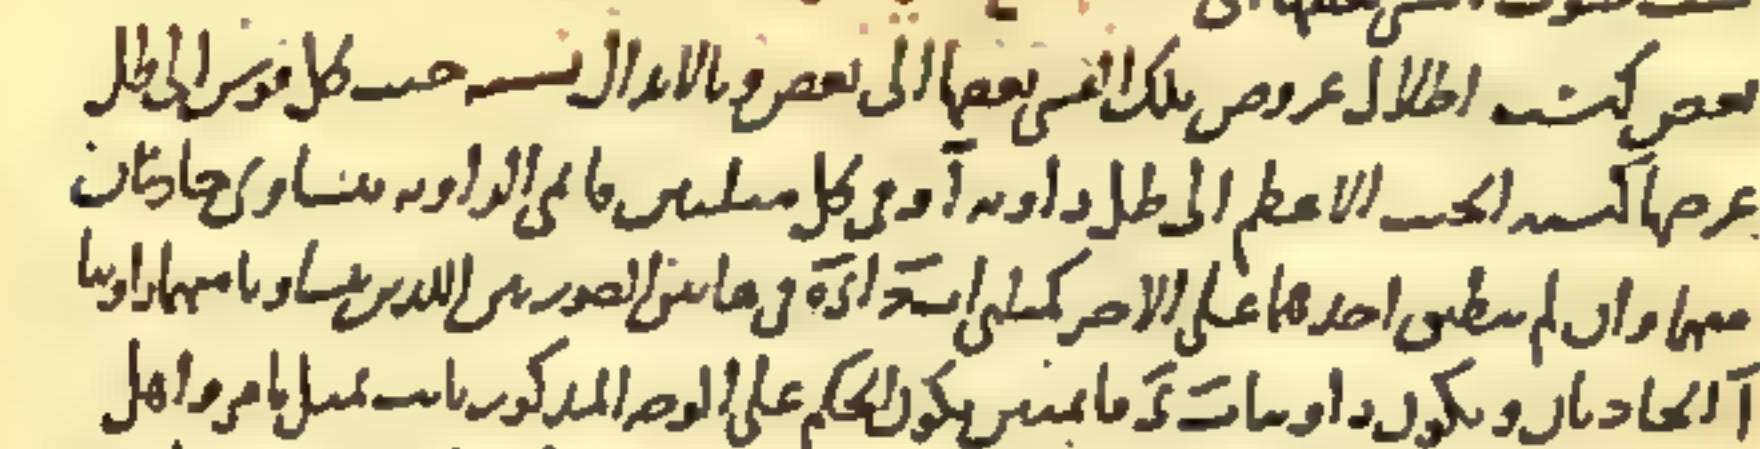 بعض كنسبة اظلال عروض تلك القسى بعضها الى بعض وبالابدال نسبة جيب كل قوس الى ظل
عرضها كنسبة الجيب الاعظم الى ظل زاوية آ وفى كل مثلثين قائمى الزاوية يتساوى حادتان
منهما وان لم ينطبق احدهما على الاخر كمثلثى فى هاتين الصورتين اللذين يتساويا منهما زاويتا
آ الحادتان ويكون زاويتا قائمتين يكون الحكم على الوجه المذكور ثابت بمثل ما مر واهل